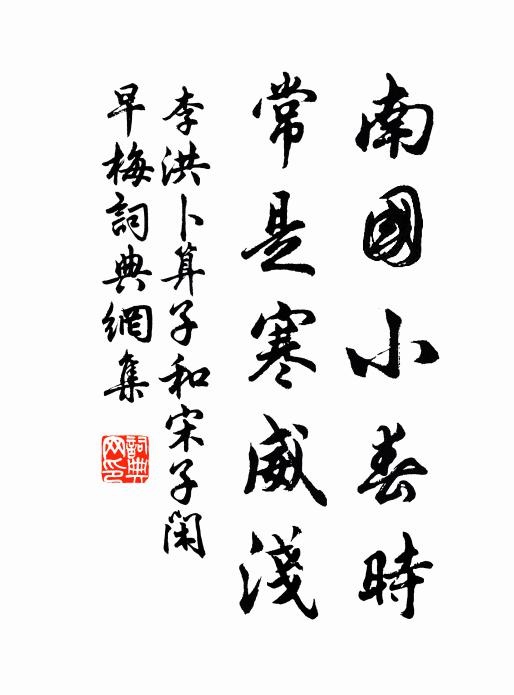 南國小春時
常是寒威淺
李洪卜算子和宋子閑
早梅詞典網集
詞典网印